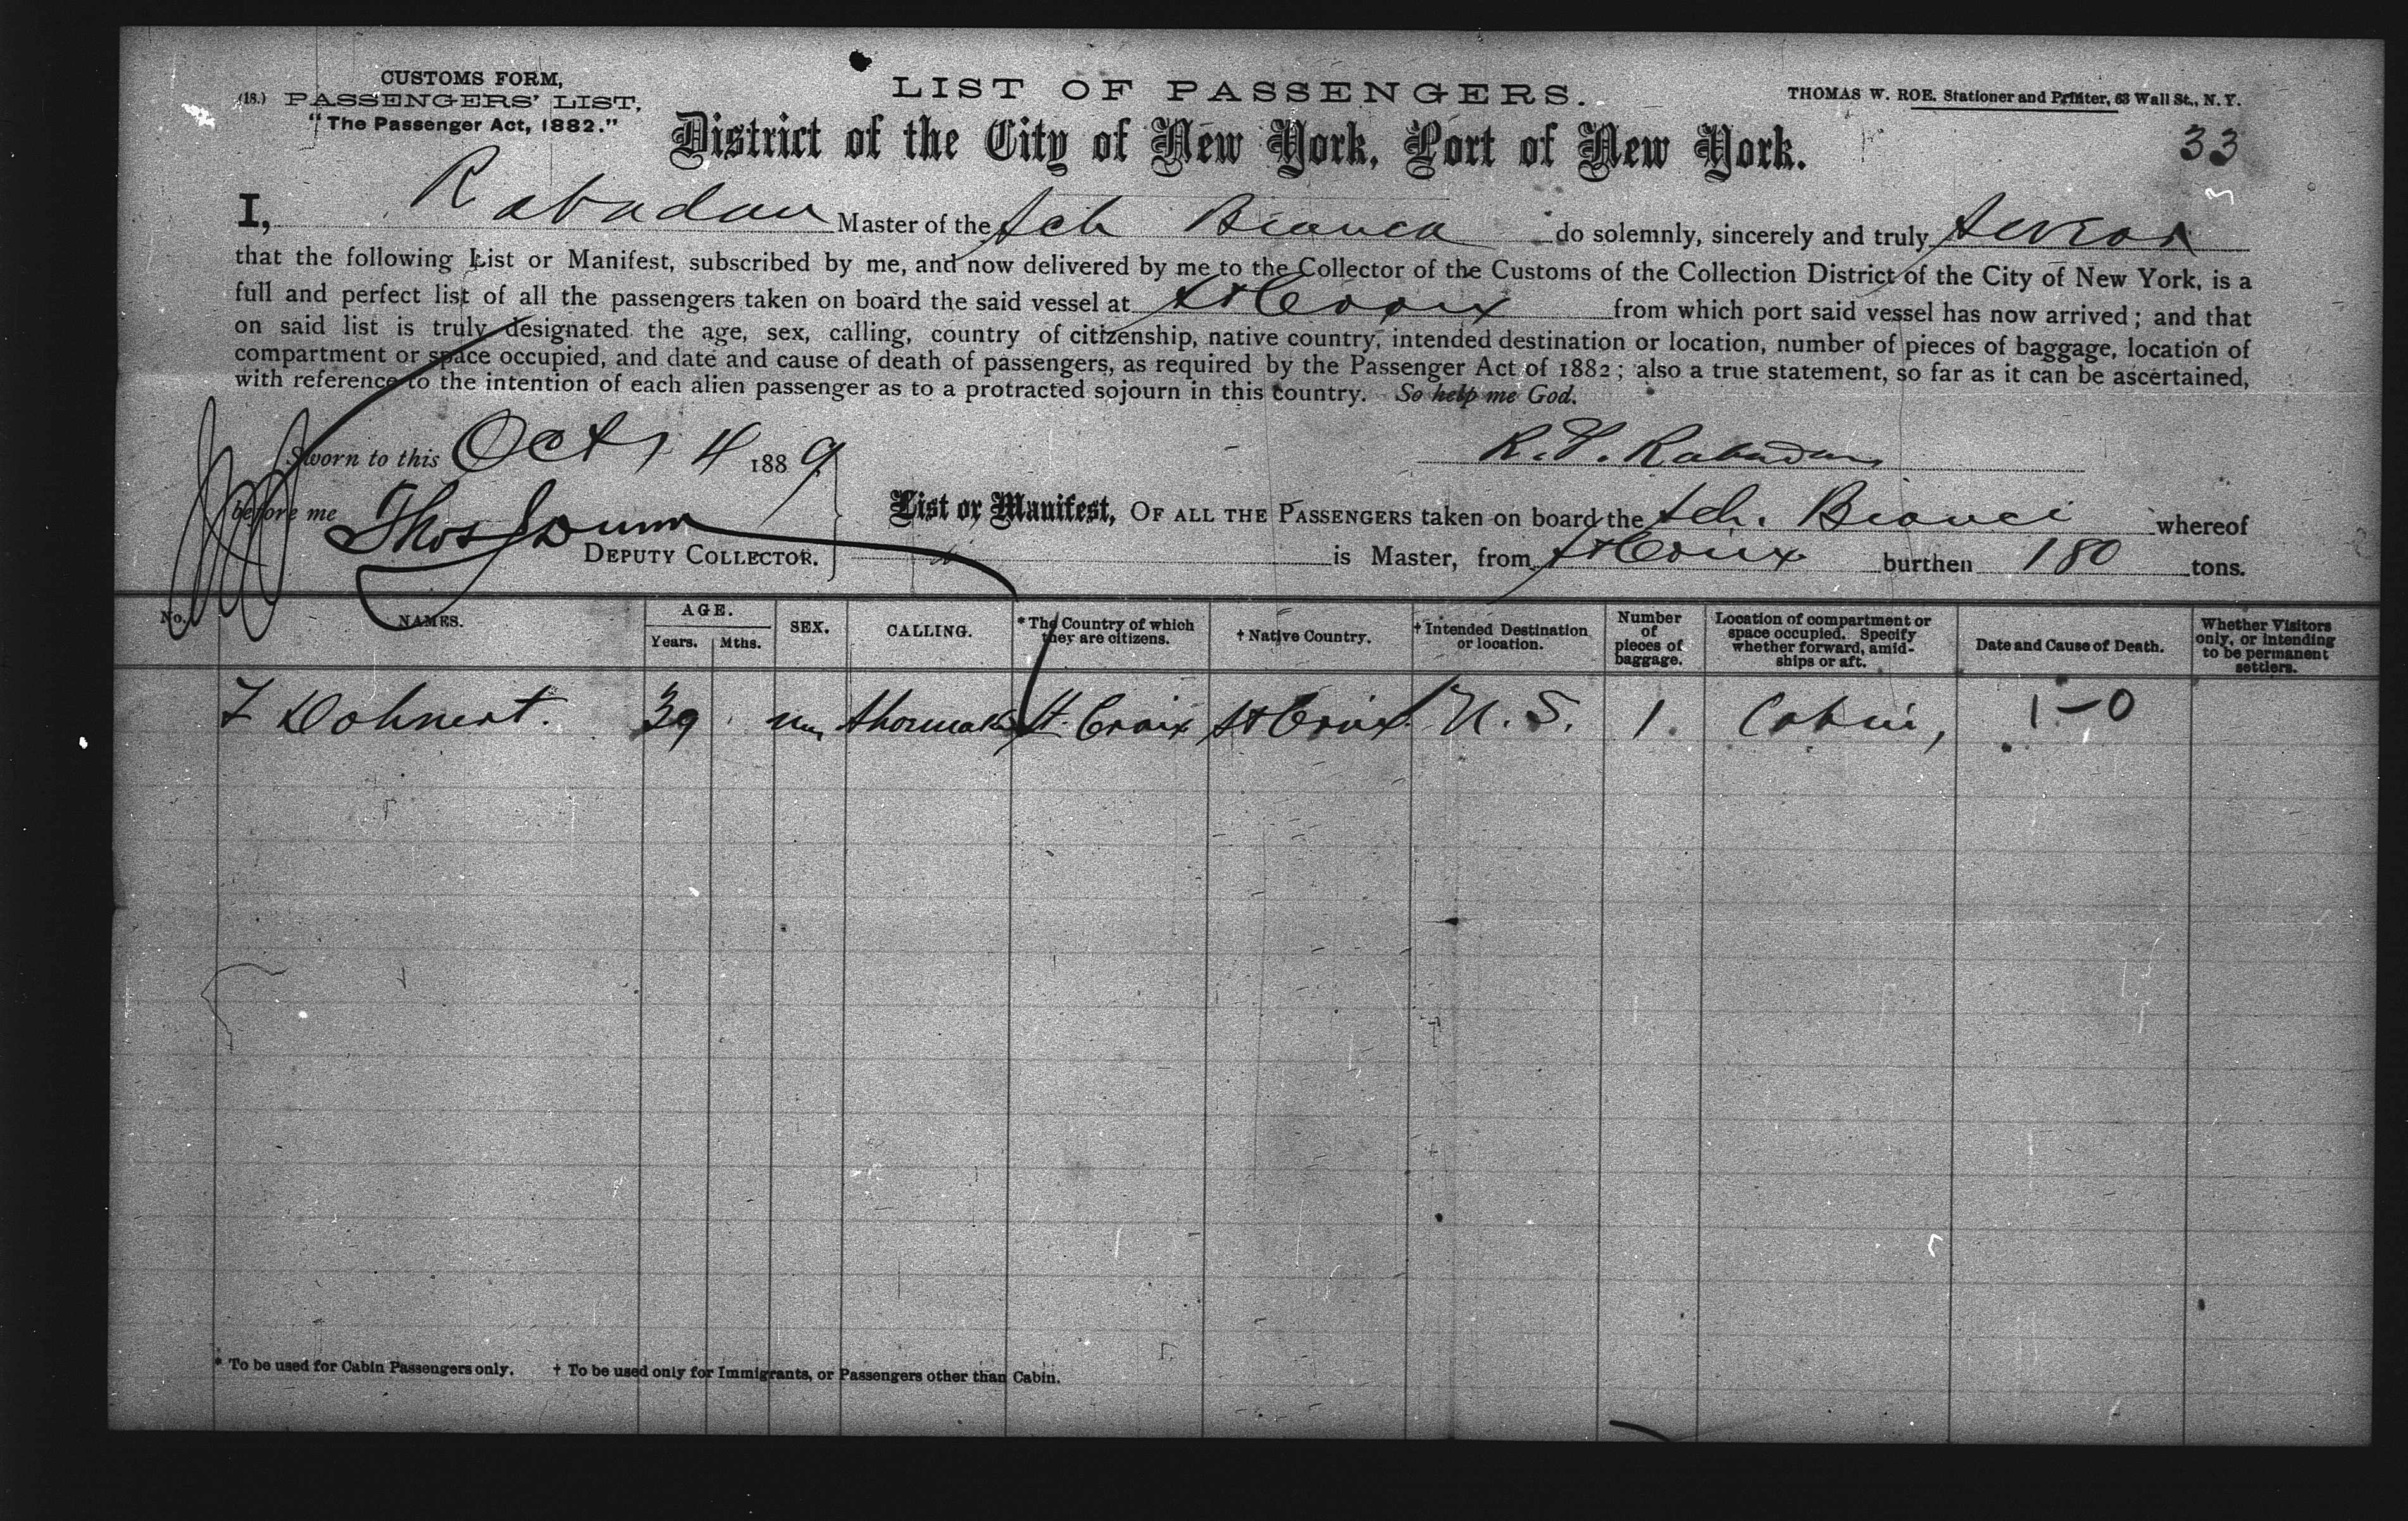 CUSTOMS FORM,
(18.) PASSENGERS' LIST,
"The Passenger Act, 1882."
LIST OF PASSENGERS.
THOMAS W. ROE, Stationer and Printer, 63 Wall St., N.Y.
District of the City of New York, Port of New York.
33
I, Rabadan Master of the Sch Bianca do solemnly, sincerely and truly swear
that the following List or Manifest, subscribed by me, and now delivered by me to the Collector of the Customs of the Collection District of the City of New York, is a
full and perfect list of all the passengers taken on board the said vessel at St Croix from which port said vessel has now arrived; and that
on said list is truly designated the age, sex, calling, country of citizenship, native country, intended destination or location, number of pieces of baggage, location of
compartment or space occupied, and date and cause of death of passengers, as required by the Passenger Act of 1882; also a true statement, so far as it can be ascertained,
with reference to the intention of each alien passenger as to a protracted sojourn in this country. So help me God.
Sworn to this Oct 4 1889
R. Rabadan
before me Thos Dunn
DEPUTY COLLECTOR.
List or Manifest, OF ALL THE PASSENGERS taken on board the Sch. whereof
is Master, from St Croix burthen 180 tons.
No. NAMES. AGE. Years. Mths. SEX. CALLING. * The Country of which they are citizens. † Native Country. † Intended Destination or location. Number of pieces of baggage. Location of compartment or space occupied. Specify whether forward, amidships or aft. Date and Cause of Death. Whether Visitors only, or intending to be permanent settlers.
Dohnert. 39 m St. Croix St Croix U.S. 1. Cabin, 1-0
* To be used for Cabin Passengers only. † To be used only for Immigrants, or Passengers other than Cabin.